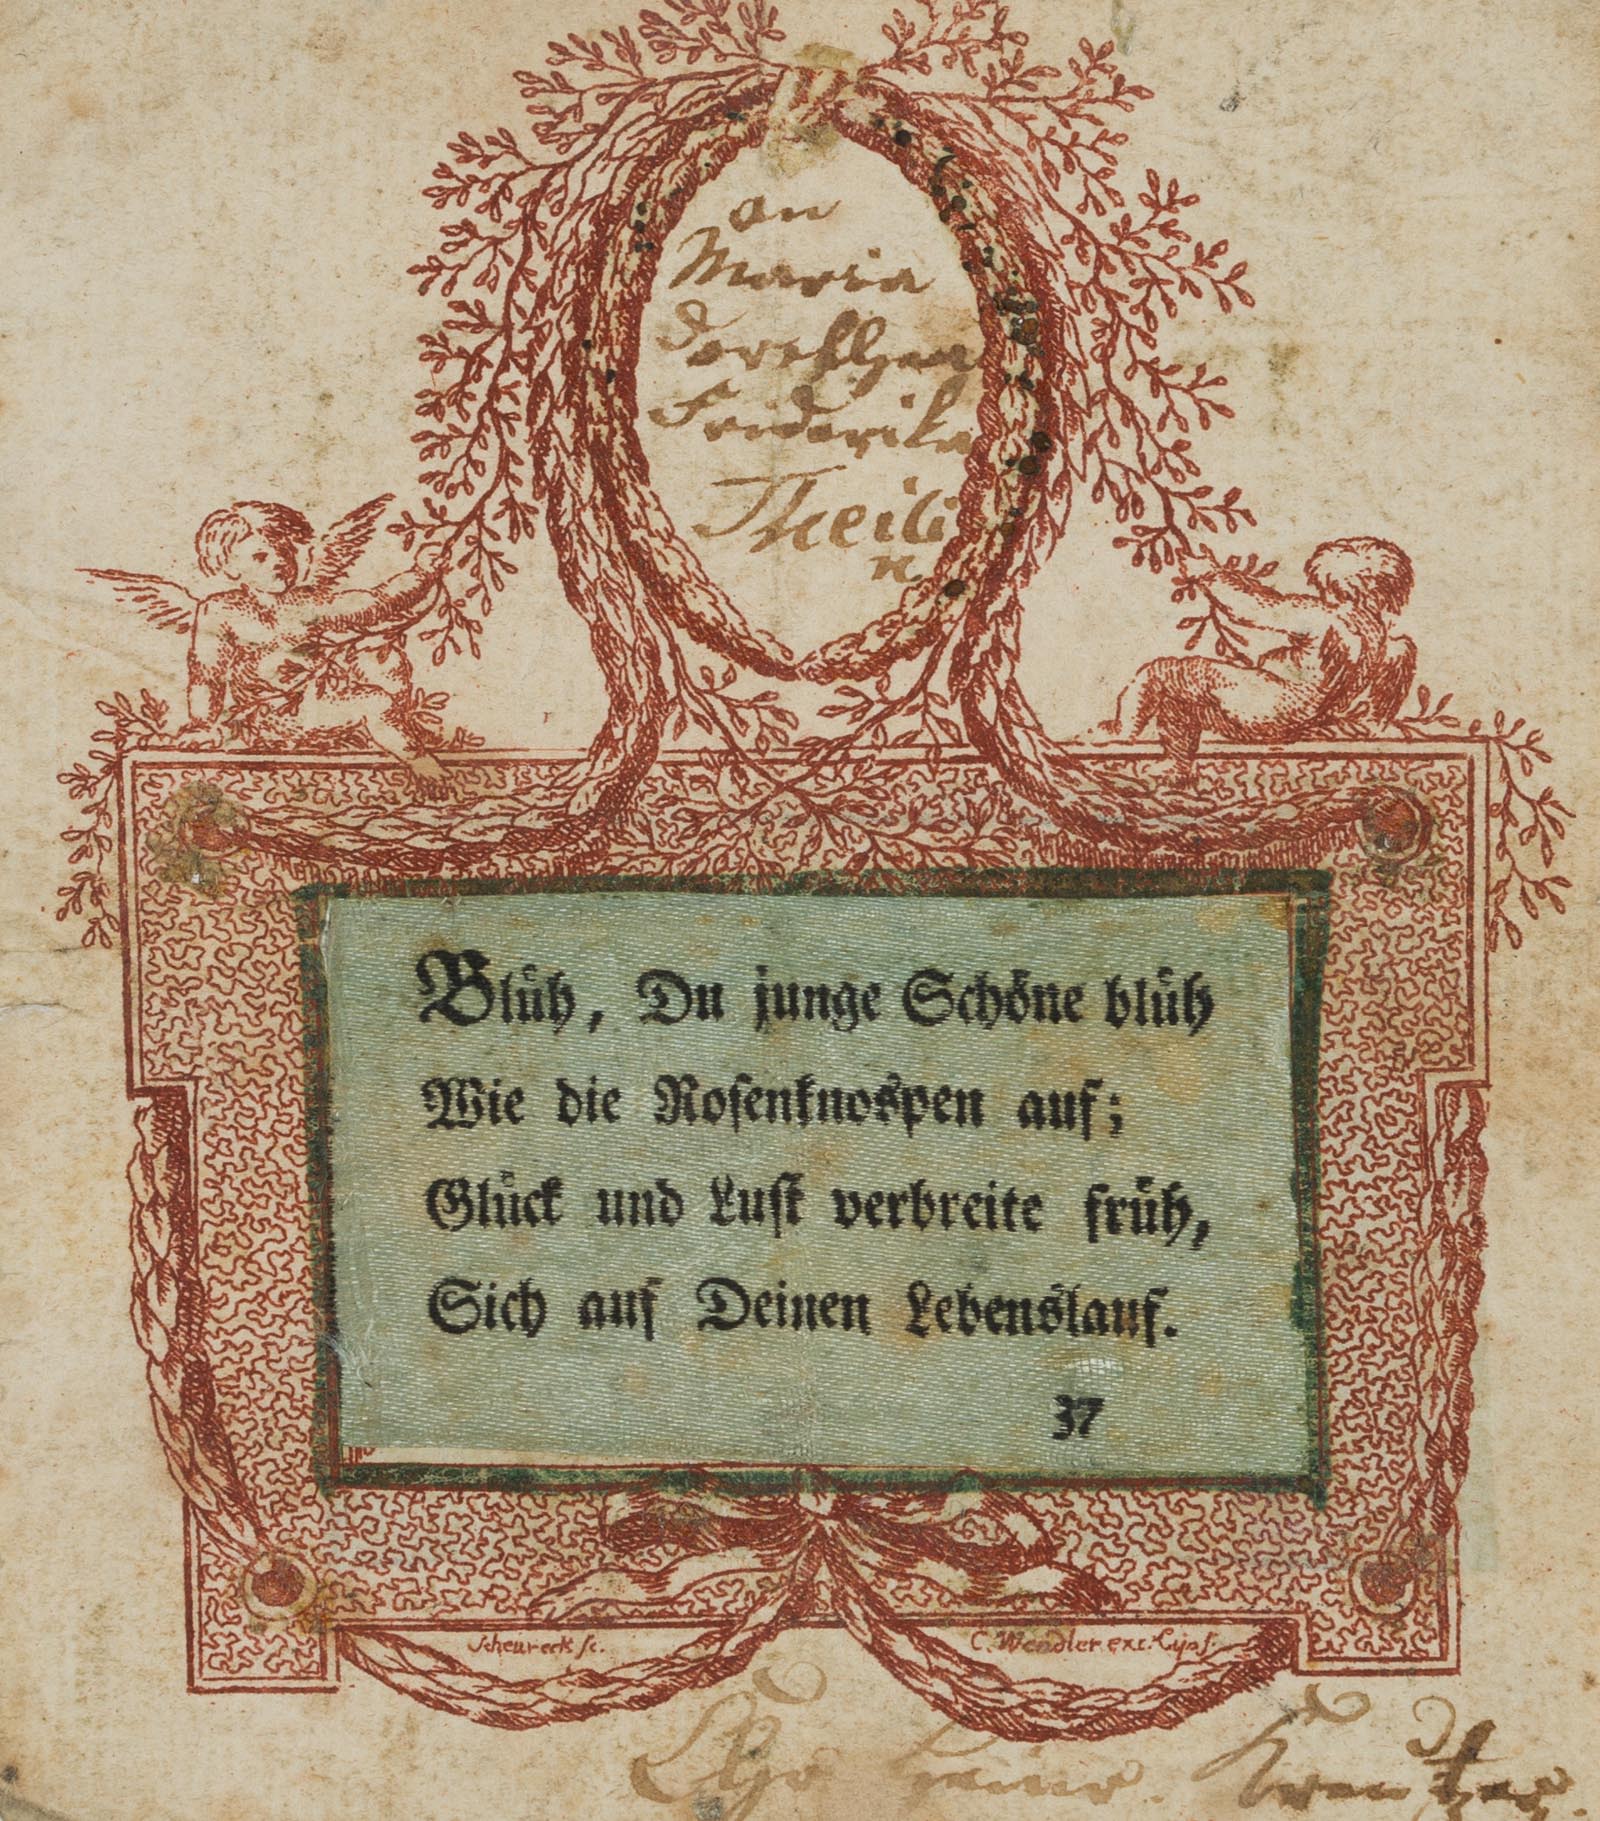 an
Maria
Dorethea
Friderika
Theili
n.
Blüh, Du junge Schöne blüh
Wie die Rosenknospen auf;
Glück und Lust verbreite früh,
Sich auf Deinen Lebenslauf.
37
Scheureck sc.
C. Wendler exc. Lips.